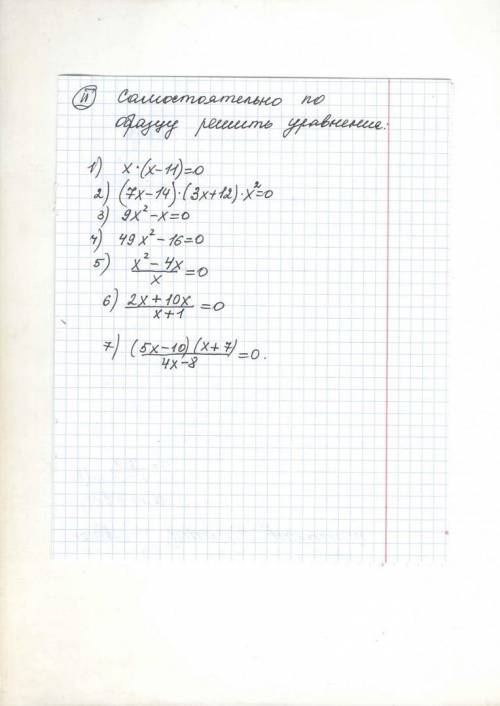 II Самостоятельно по
образцу решить уравнения:
1) x·(x-11)=0
2) (7x-14)·(3x+12)·x²=0
3) 9x²-x=0
4) 49x²-16=0
5) (x²-4x)/x=0
6) (2x+10x)/(x+1)=0
7) ((5x-10)(x+7))/(4x-8)=0.